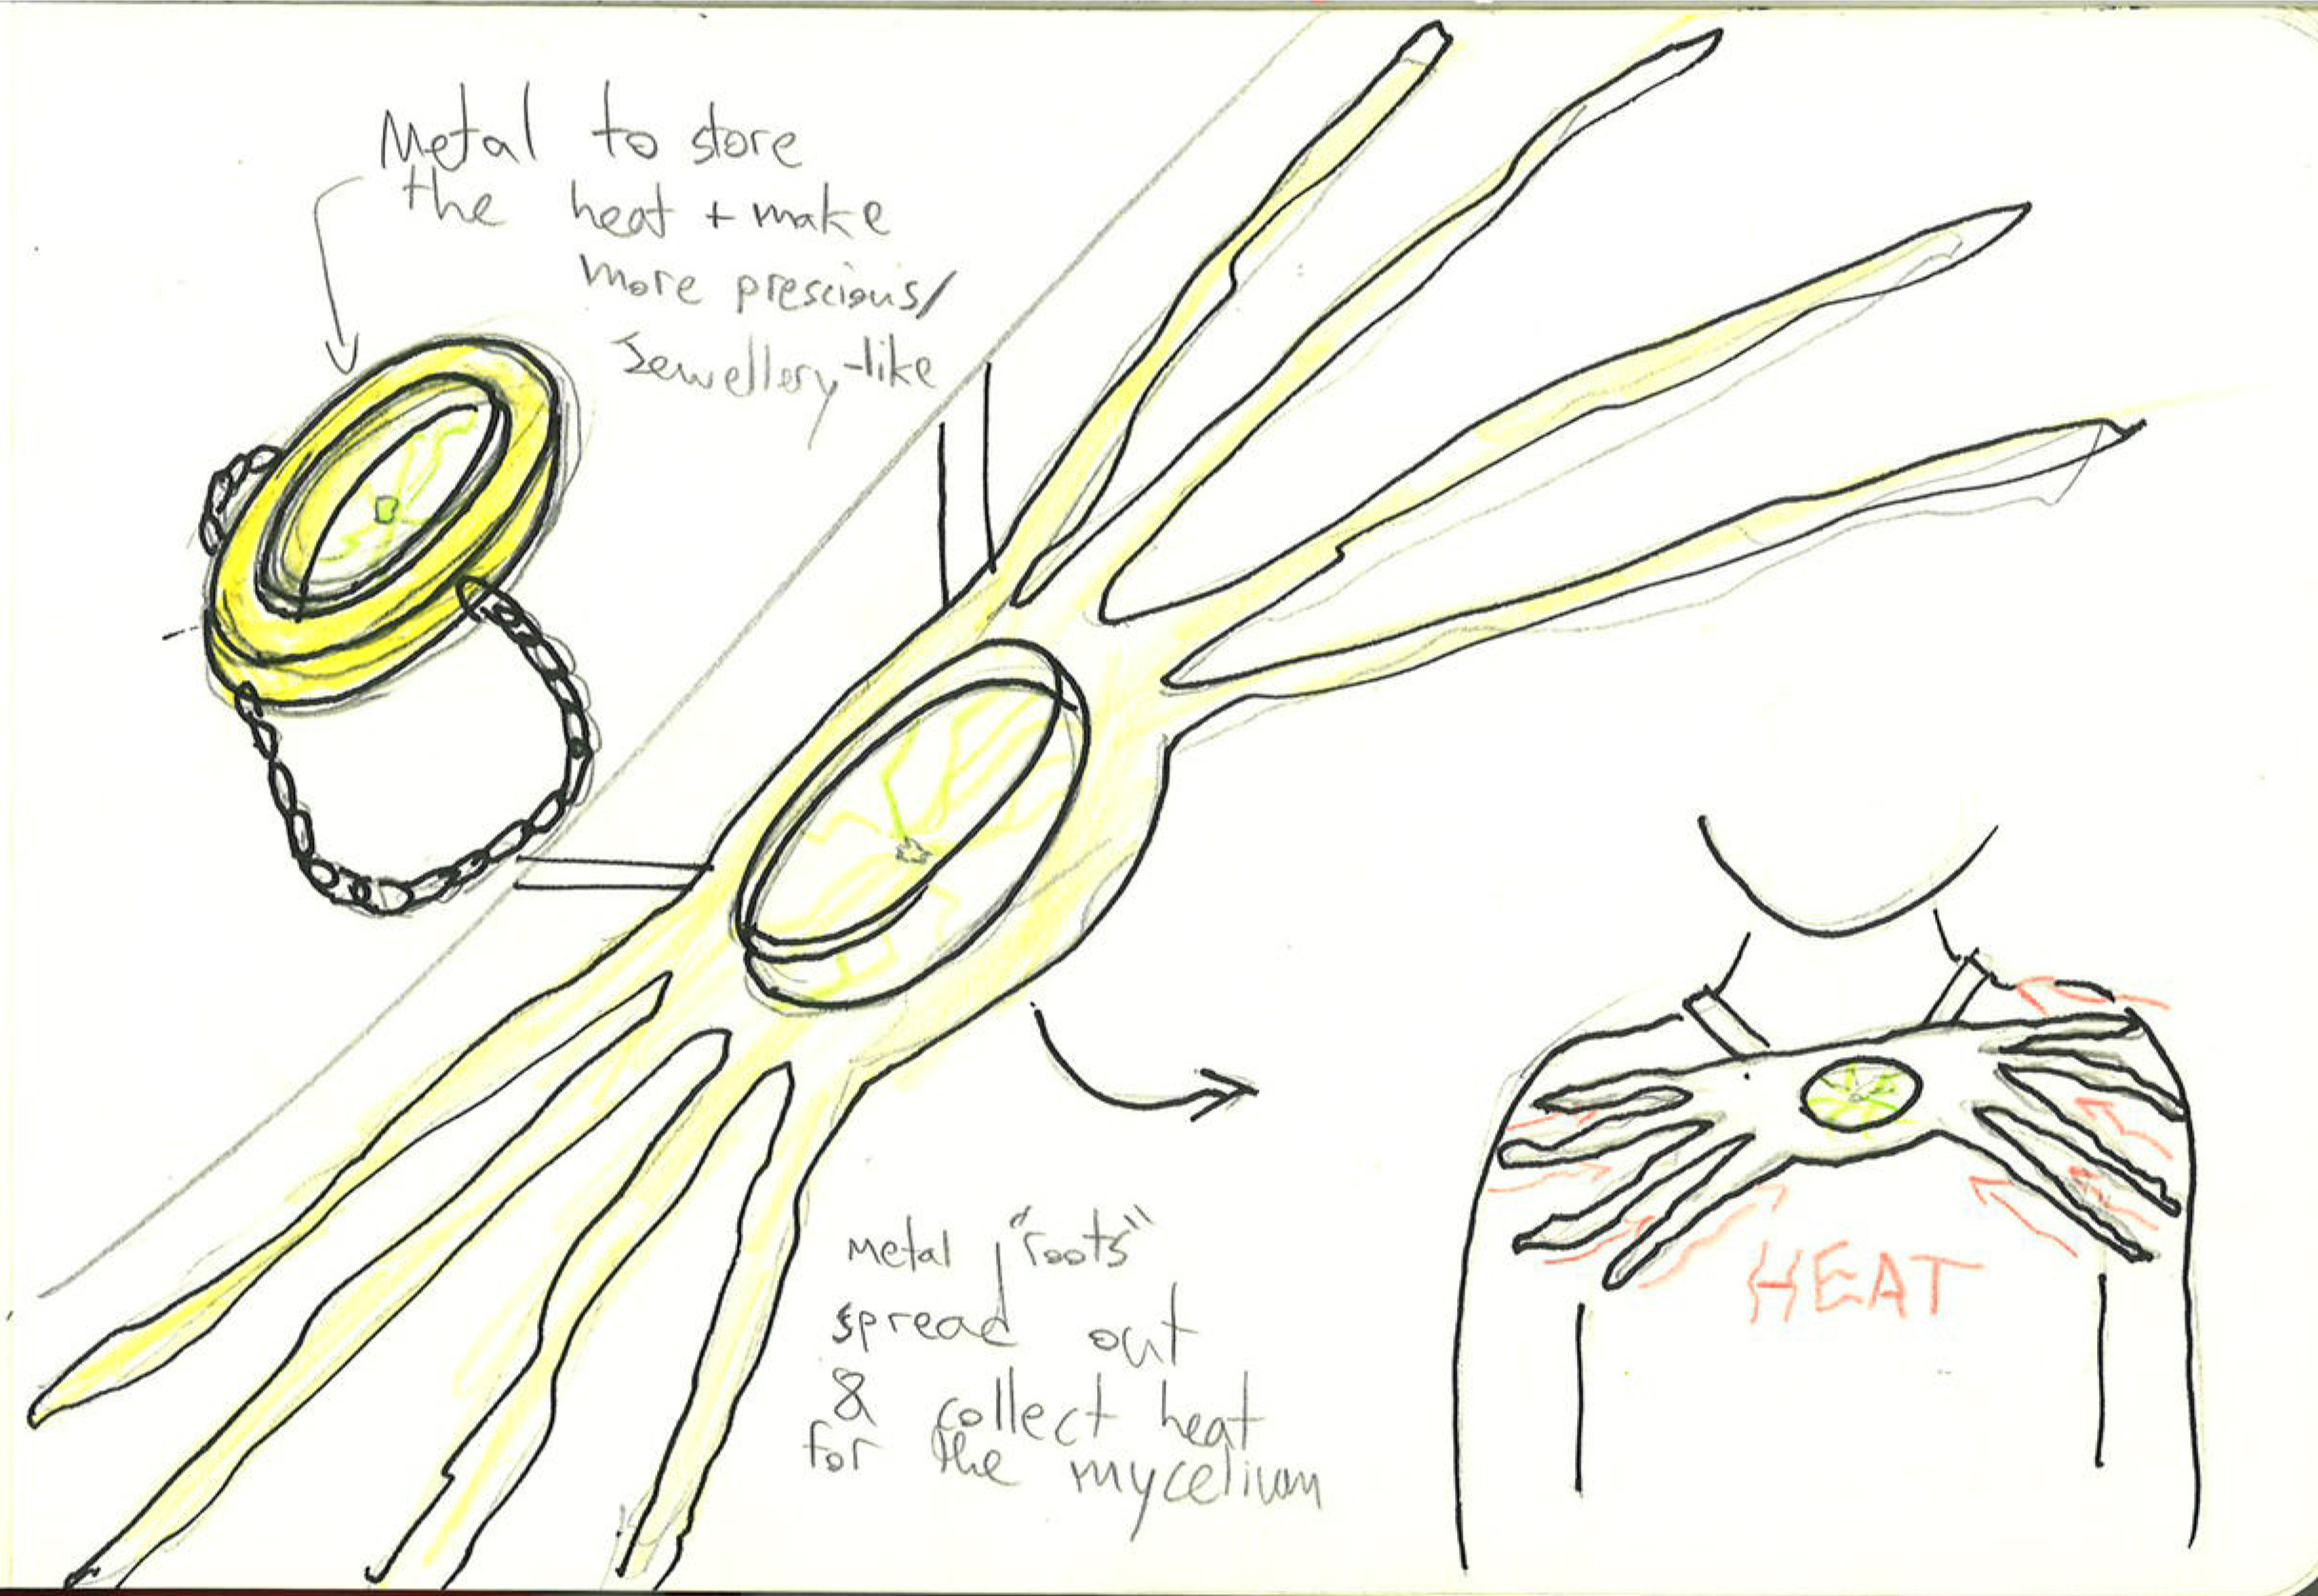 Metal to store
the heat + make
more prescious/
Jewellery-like
Metal "roots"
spread out
& collect heat
for the mycelium
HEAT